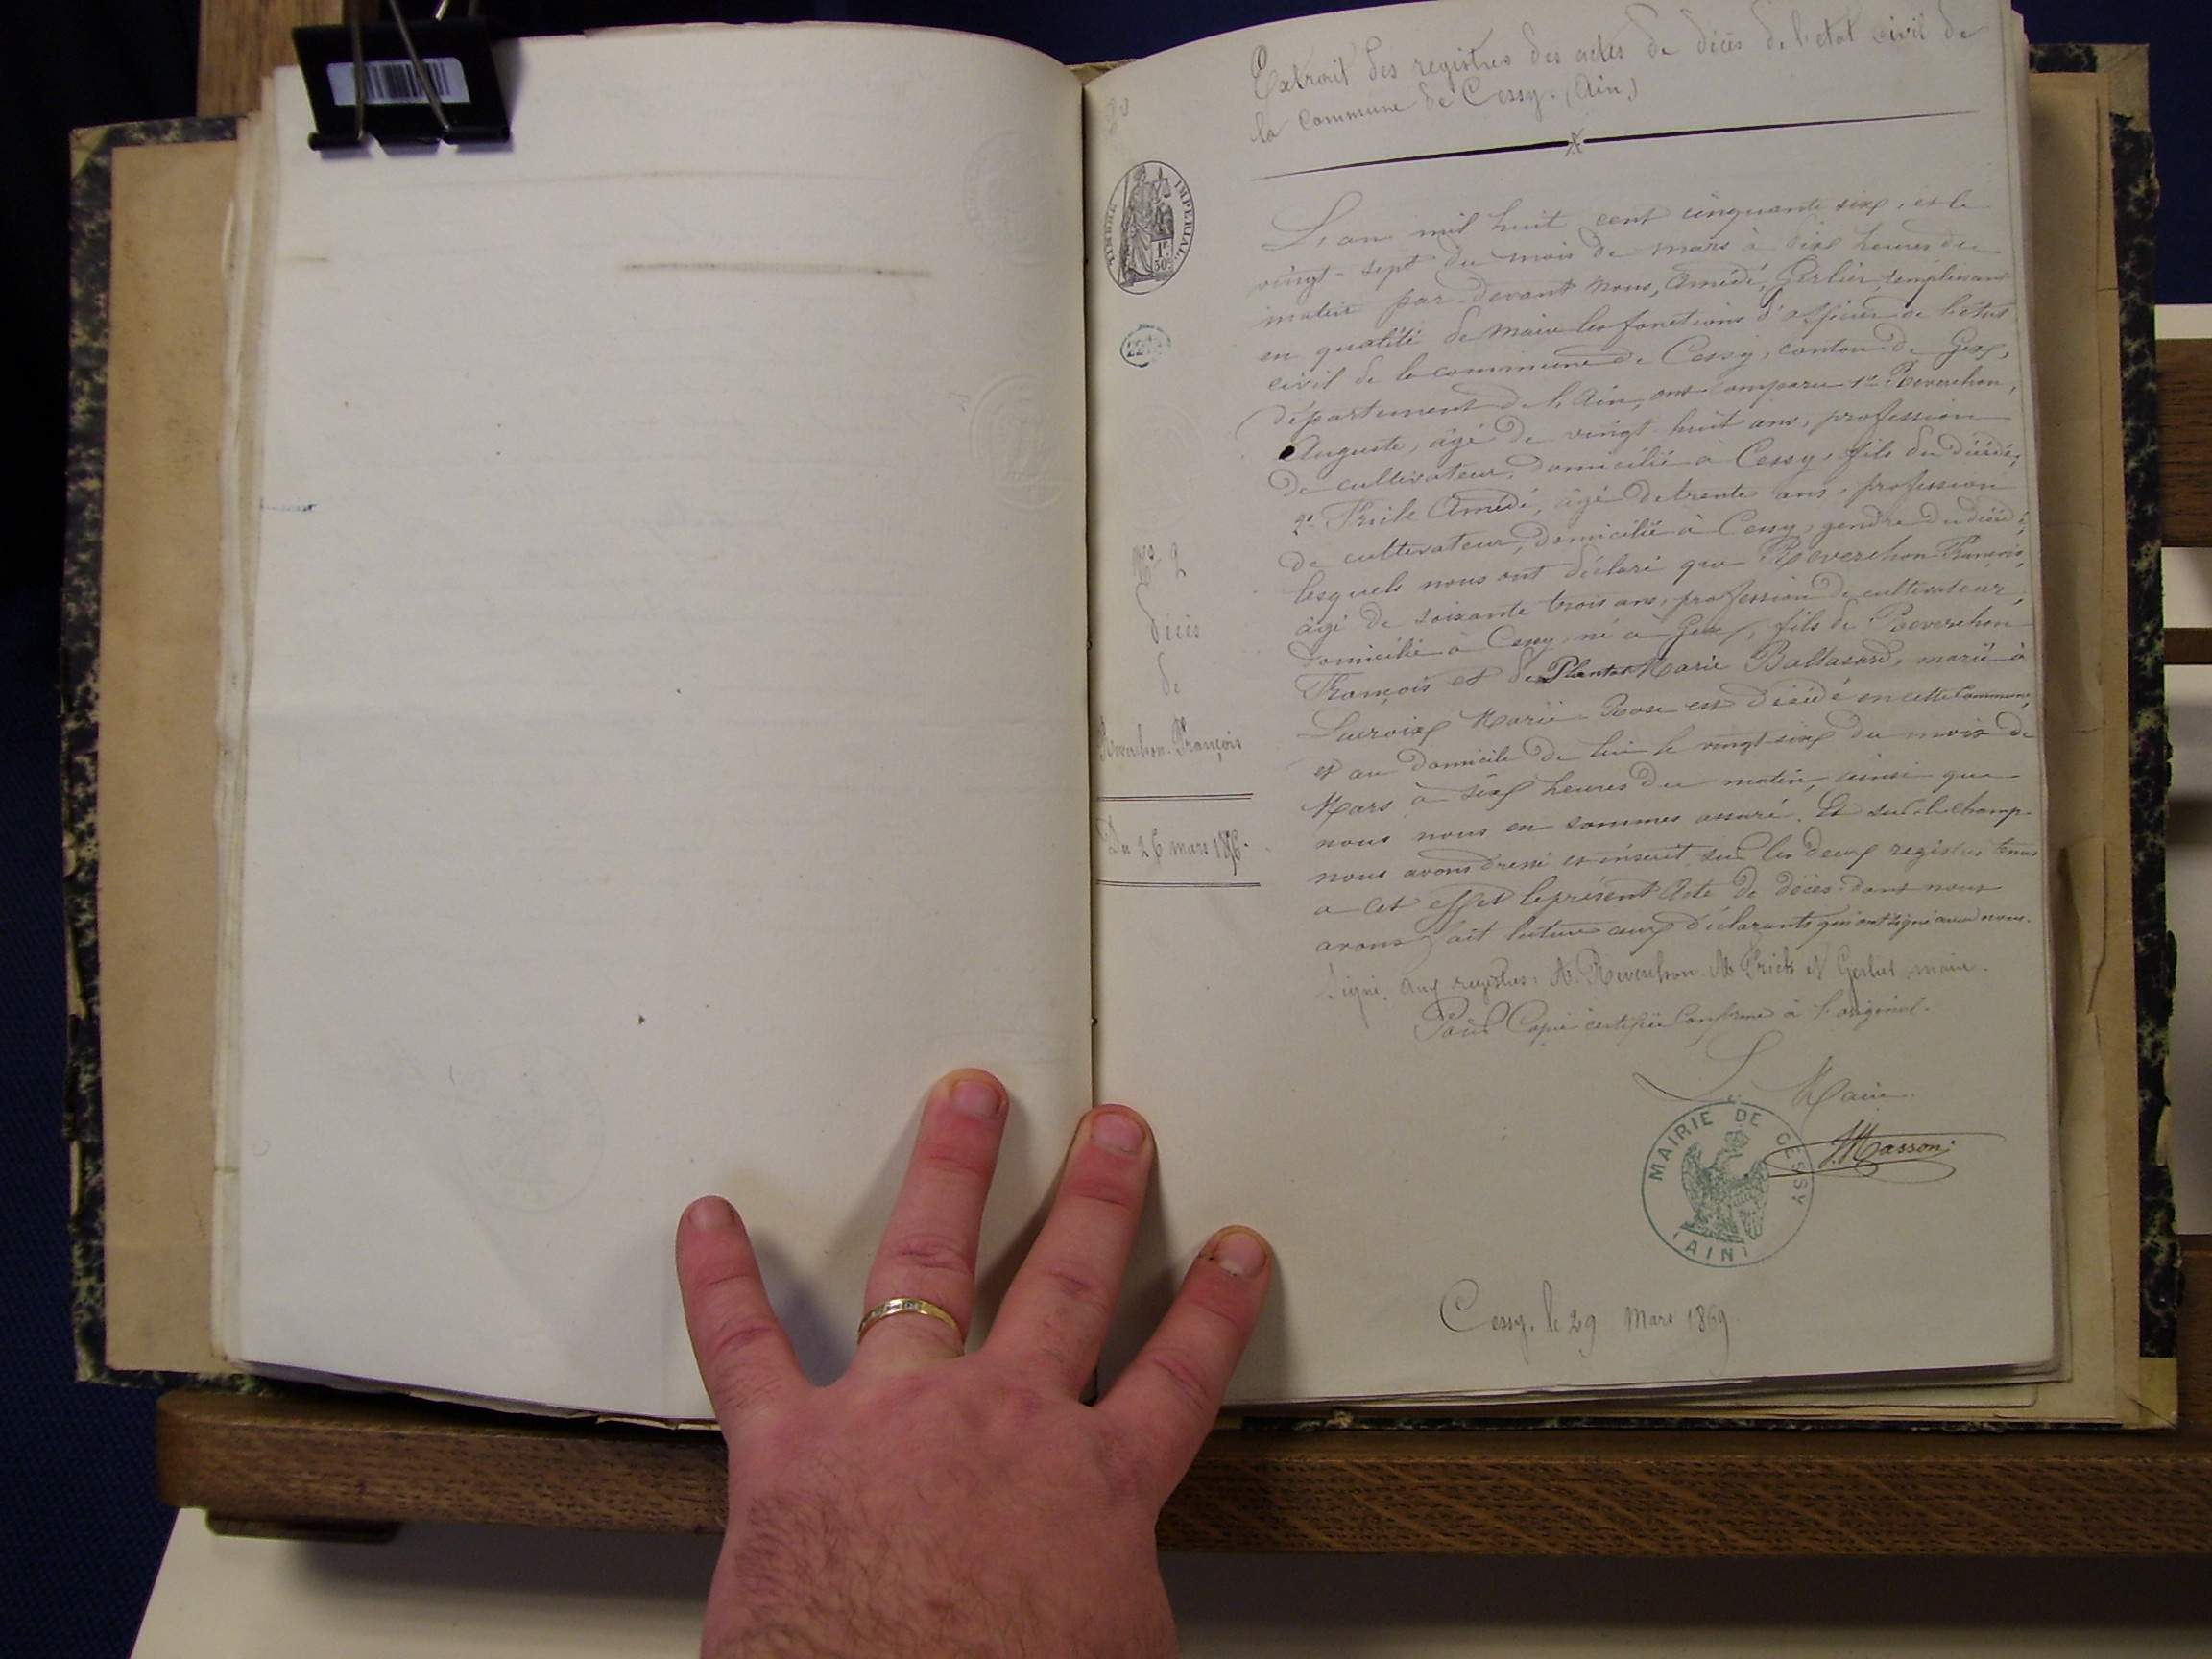 Extrait des registres des actes de décès de l'état civil de
la commune de Cessy. (Ain)
20
TIMBRE IMPERIAL
1F
50C
L'an mil huit cent cinquante six, et le
vingt-sept du mois de mars à dix heures du
matin par-devant nous, Amédé, Gerlier, remplissant
en qualité de maire les fonctions d'officier de l'état
civil de la commune de Cessy, canton de Gex,
département de l'Ain, ont comparu 1º Reverchon,
Auguste, âgé de vingt-huit ans, profession
de cultivateur, domicilié à Cessy, fils du décédé,
2º Amédé, âgé de trente ans, profession
de cultivateur, domicilié à Cessy, gendre du décédé,
lesquels nous ont déclaré que Reverchon François,
âgé de soixante trois ans, profession de cultivateur,
domicilié à Cessy, né à Gex, fils de Reverchon
François et de Plantat Marie Baltasard, marié à
Lacroix Marie Rose est décédé en cette commune,
et au domicile de lui le vingt-six du mois de
Mars à six heures du matin, ainsi que
nous nous en sommes assuré. Et sur-le-champ
nous avons dressé et inscrit sur les deux registres tenus
a cet effet le présent Acte de décès dont nous
avons fait lecture aux déclarants qui ont signé avec nous.
Signé aux registres: A. Reverchon. et Gerlier maire.
Pour Copie certifiée Conforme à l'original.
Nº 2
décès
de
Reverchon François
Du 26 mars 1856.
Le Maire
Masson
MAIRIE DE CESSY
(AIN)
Cessy, le 29 Mars 1869